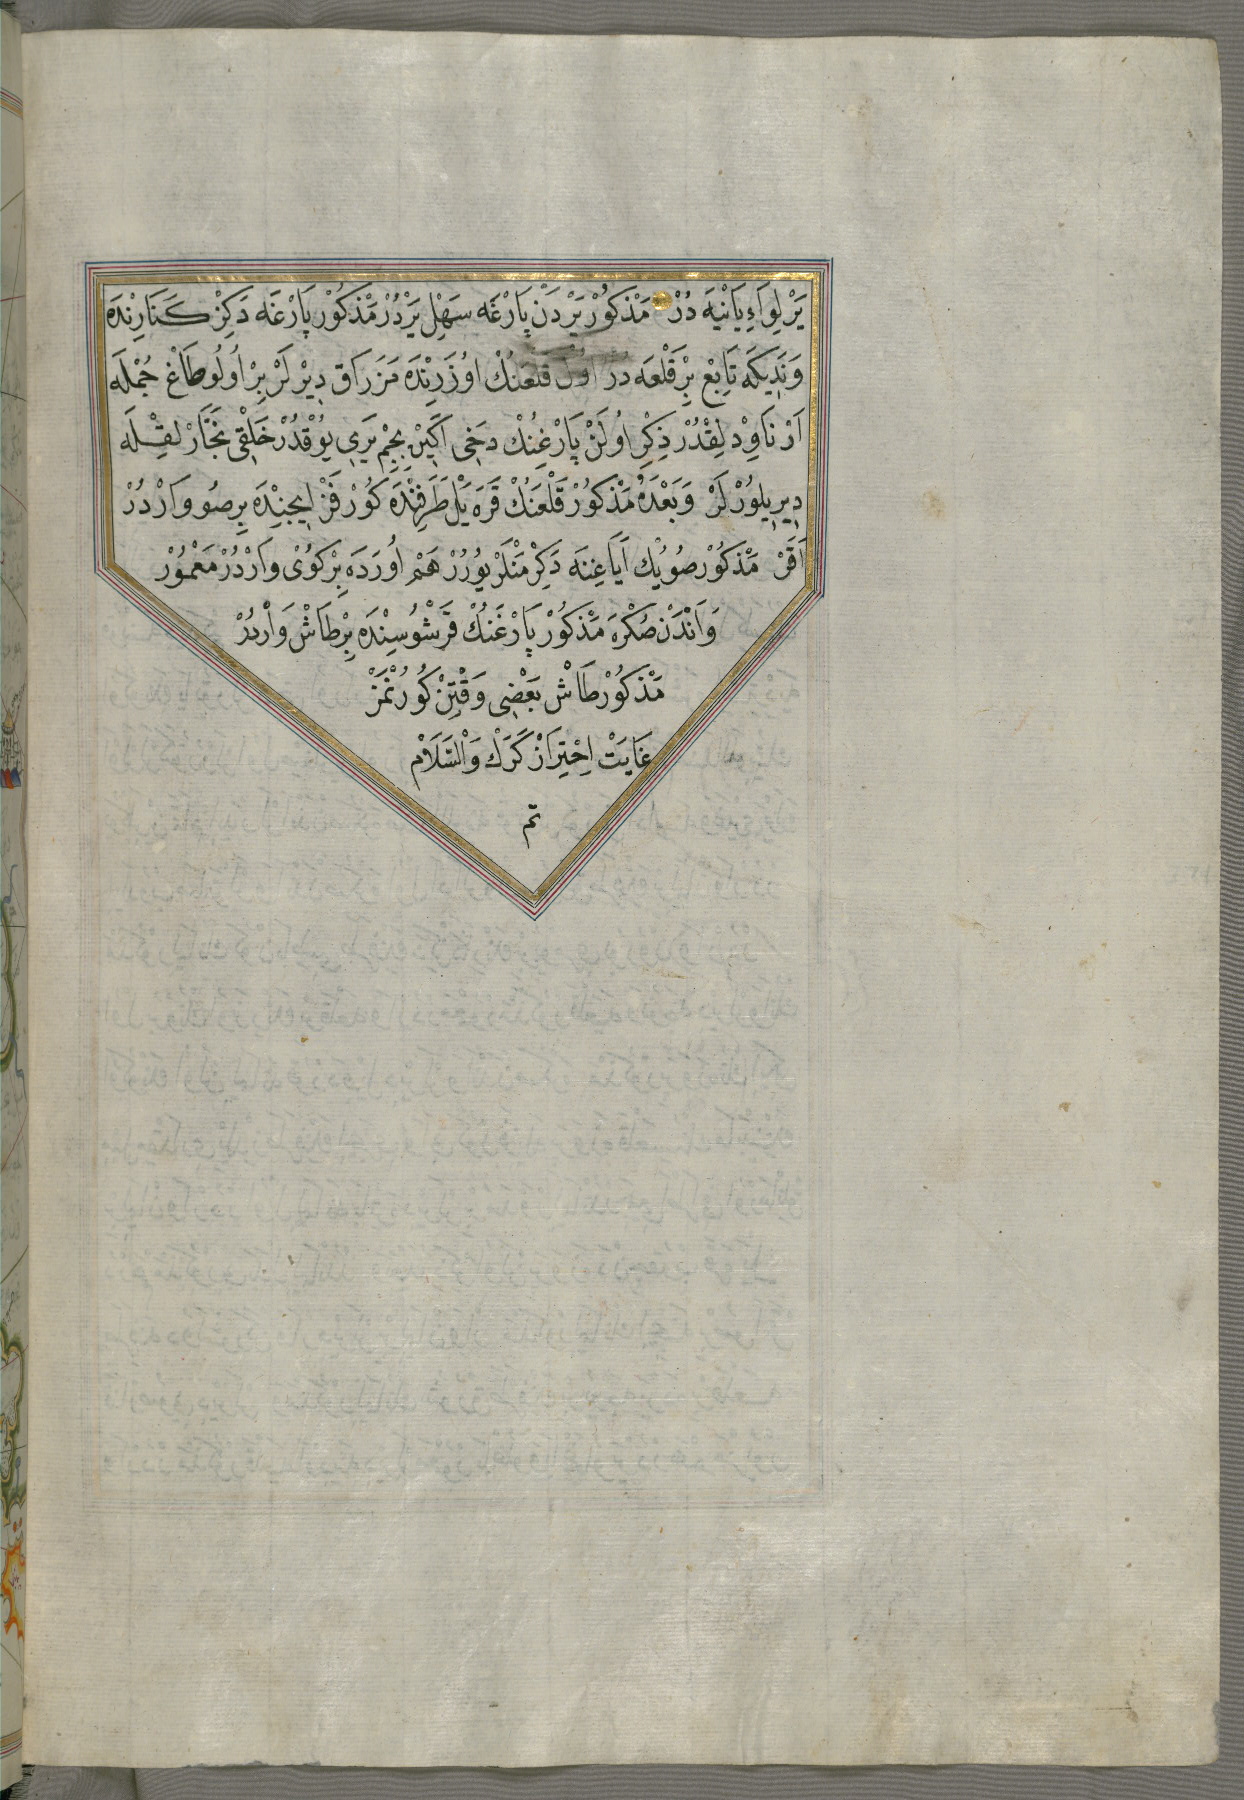 يَرْ لِوَاءِ يَانْيَه دُرْ مَذْكُورْ يَرْدَنْ پَارْغَه سَهِلْ يَرْدُرْ مَذْكُورْ پَارْغَه دَكِزْ كَنَارِنْدَه
وَنَدِيكَه تَابِعْ بِرْ قَلْعَه دُرْ اُولْ قَلْعَنُكْ اوُزَرِنْدَه مَزَرَاق دِيرْلَرْ بِرْ اُولُو طَاغْ جُمْلَه
اَرْنَاوِدْلِقْدُرْ ذِكْرِ اُولَنْ پَارْغِنُكْ دَخِى اَكِينْ بِچِمْ يَرِى يُوْقْدُرْ خَلْقِى نَجَّارْلِقِلَه
دِيرِيلُورْلَرْ وَبَعْدَهُ مَذْكُورْ قَلْعَنُكْ قَرَه يَلْ طَرَفِنْدَه كُورْفَزْ اِيچِنْدَه بِرْ صُو وَارْدُرْ
اَقَرْ مَذْكُورْ صُويُكْ اَيَاغِنَه دَكِرْمَنْلَرْ يُورُرْ هَمْ اُورَدَه بِرْ كُوىْ وَارْدُرْ مَعْمُورْ
وَاَنْدَنْ صُكْرَه مَذْكُورْ پَارْغَنُكْ قَرْشُوسِنْدَه بِرْ طَاشْ وَارْدُرْ
مَذْكُورْ طَاشْ بَعْضِى وَقْتِنْ كُورُنْمَزْ
غَايَتْ اِحْتِرَازْ كَرَكْ وَالسَّلَامْ
تم